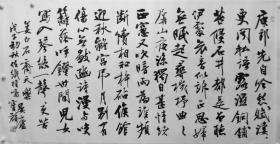 庾郎先自吟愁賦淒
淒更聞私語露濕銅鋪
苔侵石井都是曾聽
伊處哀音似訴正思婦
無眠起尋機杼曲曲
屏山夜涼獨自甚情緒
西窗又吹暗雨為誰頻
斷續相和砧杵候館
迎秋離宮弔月別有
傷心無數豳詩漫與笑
籬落呼燈世間兒女
寫入琴絲一聲聲更苦
姜白石齊天樂